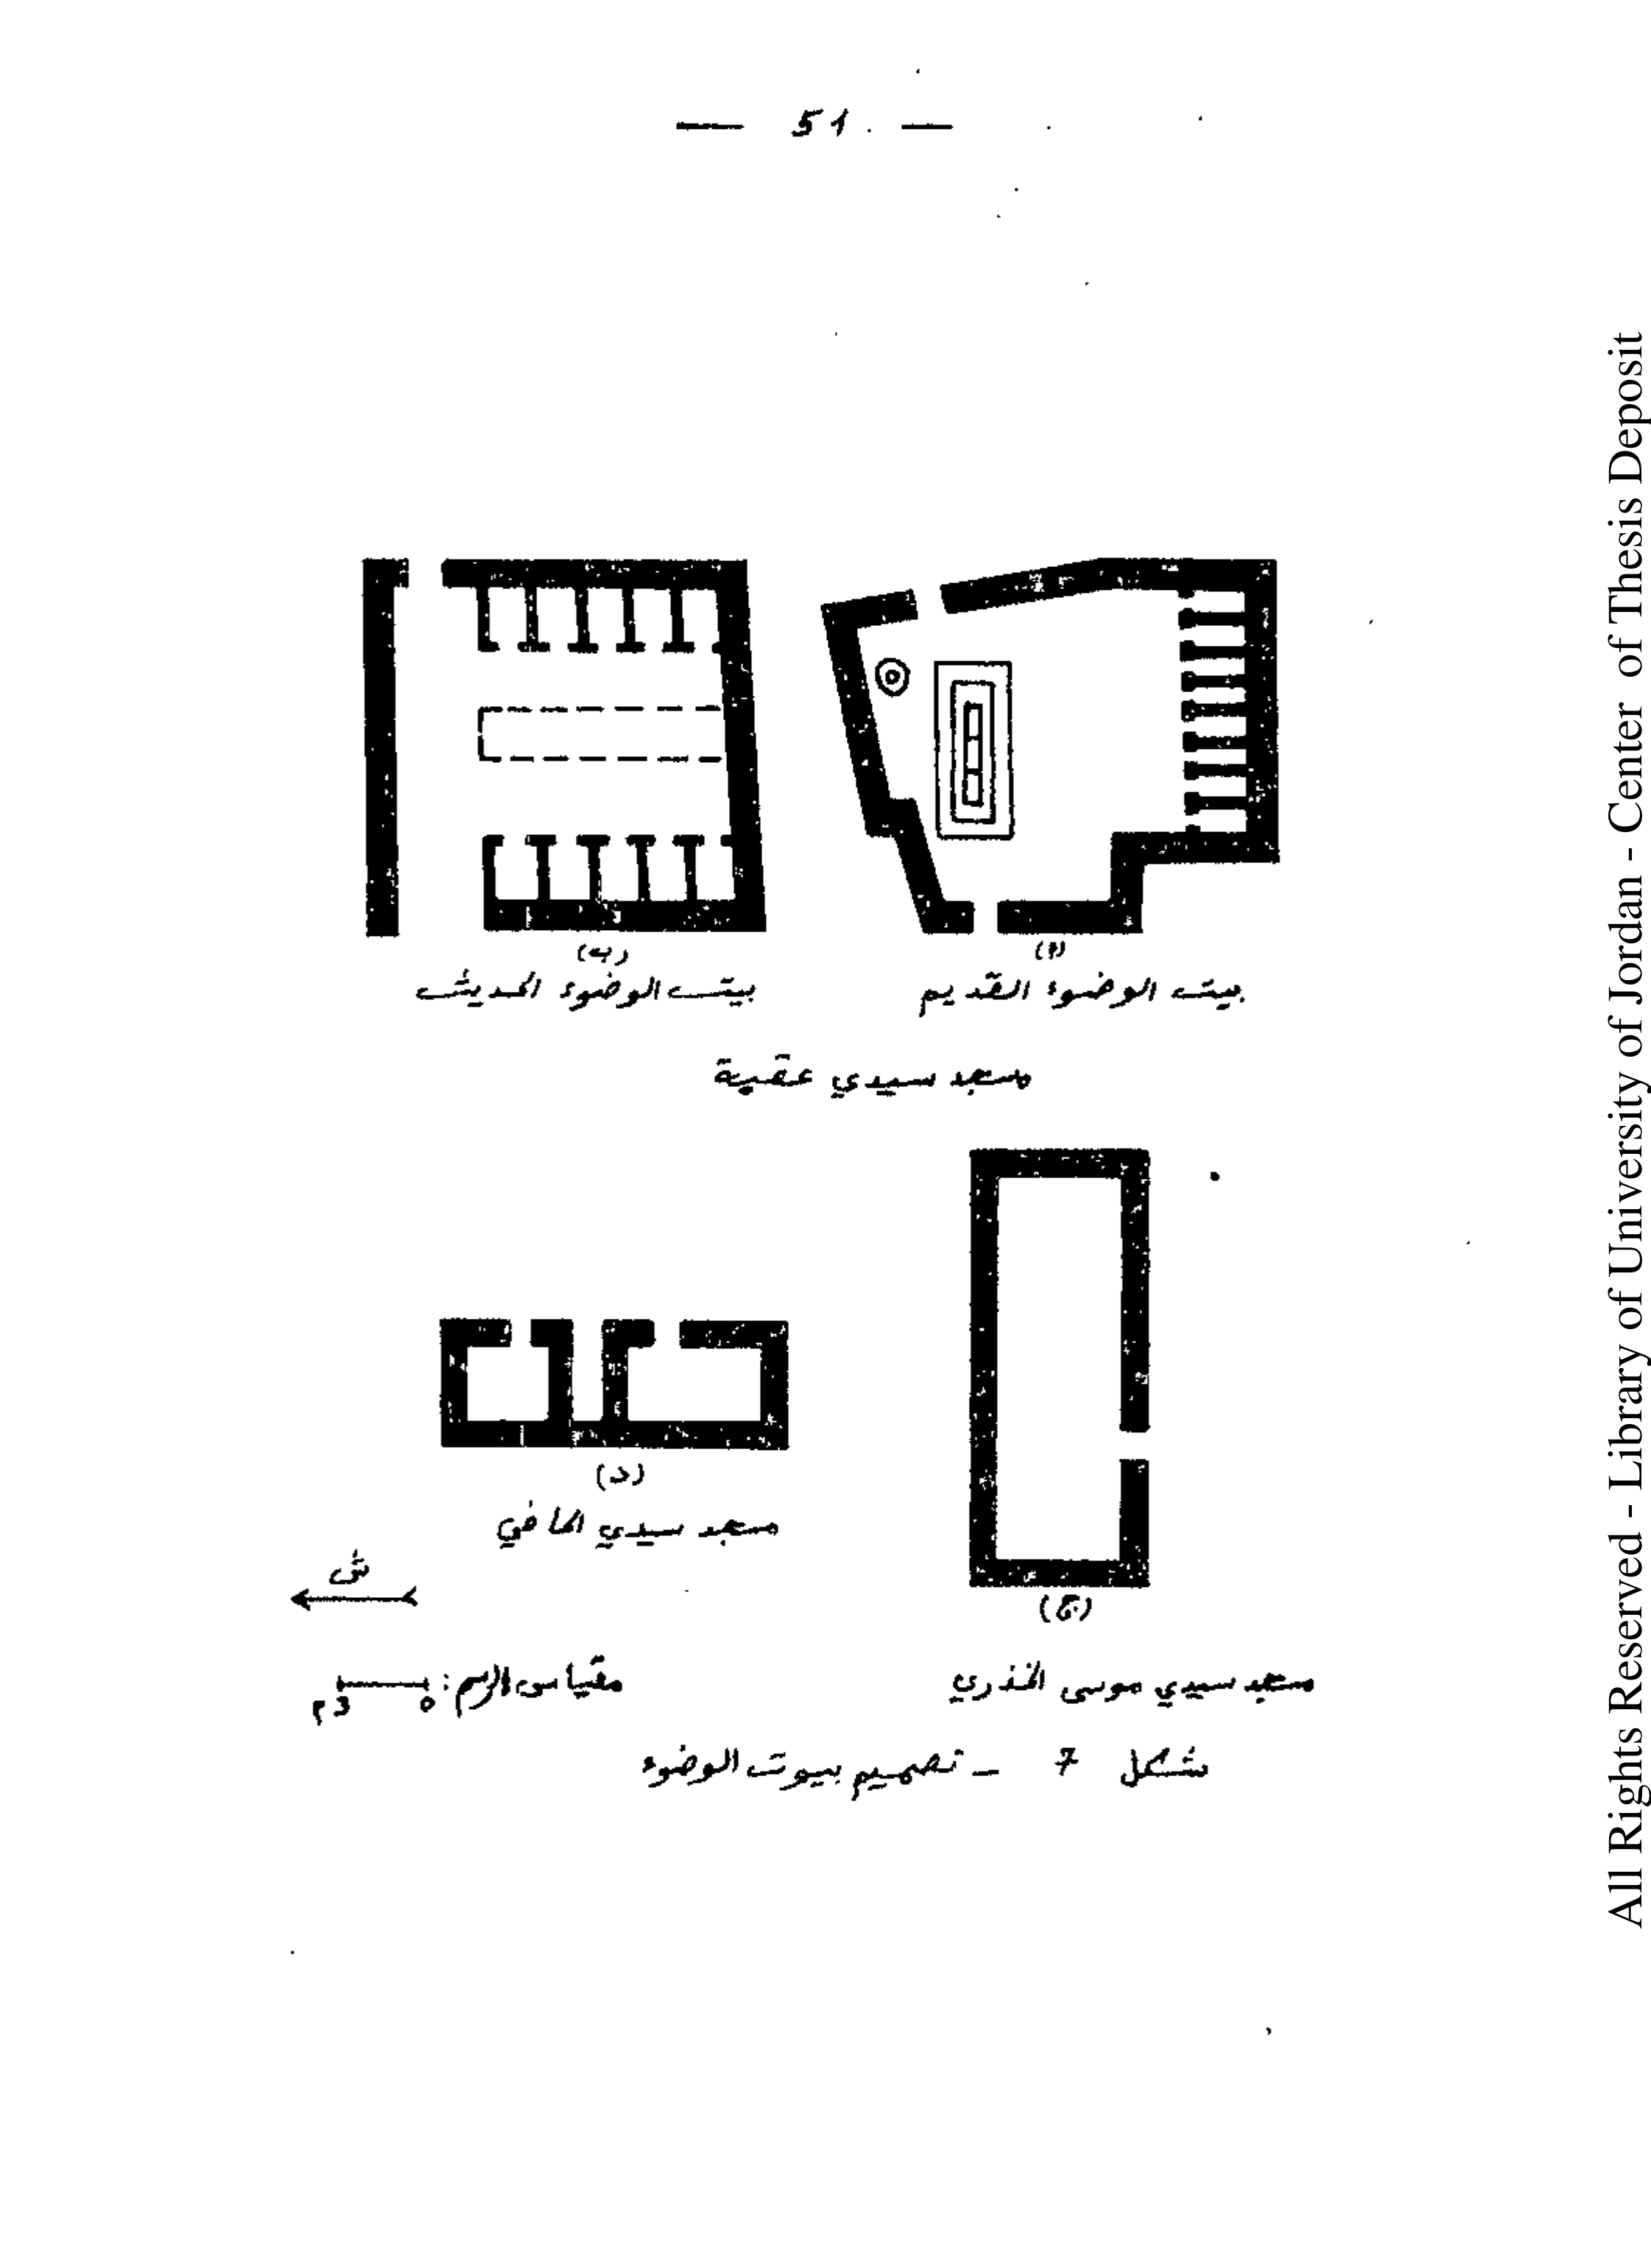 — 51 —
(أ)
بيت الوضوء القديم
(ب)
بيت الوضوء الحديث
مسجد سيدي عقبة
(د)
مسجد سيدي الحافي
(ج)
مسجد سيدي موسى الخذري
ش
مقياس الرسم: 0 3م
شكل 7 - تصميم بيوت الوضوء
All Rights Reserved - Library of University of Jordan - Center of Thesis Deposit